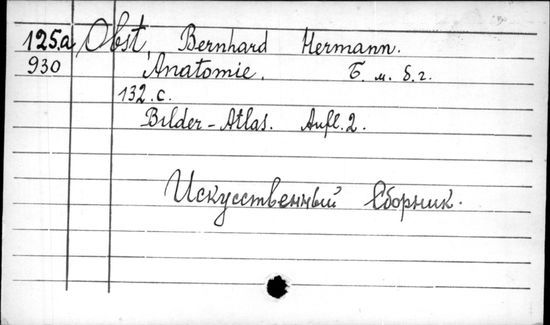 125.a Obst, Bernhard Hermann.
930 Anatomie. Б. м. б. г.
132.с.
Bilder-Atlas. Aufl. 2.
Искусственный Сборник.